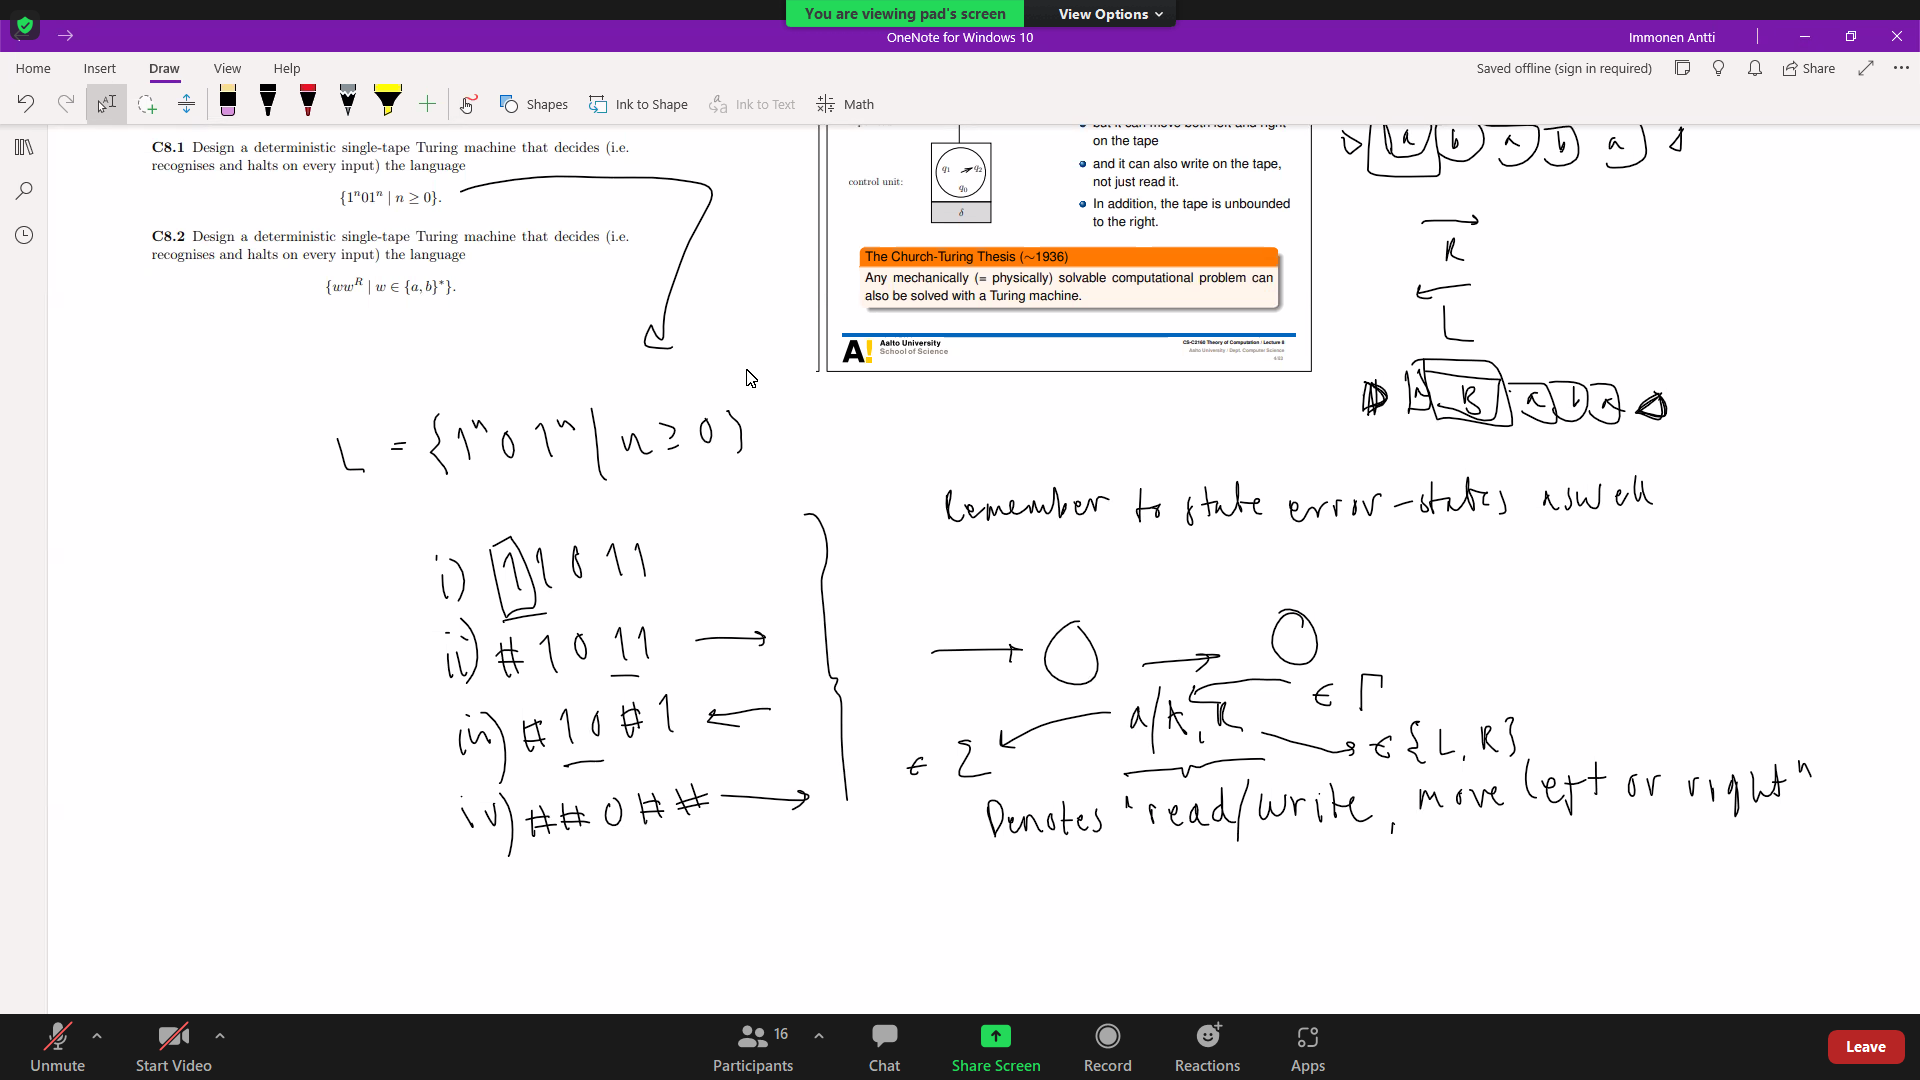 You are viewing pad's screen
View Options
OneNote for Windows 10
Immonen Antti
Home
Insert
Draw
View
Help
Saved offline (sign in required)
Share
Shapes
Ink to Shape
Ink to Text
Math
C8.1 Design a deterministic single-tape Turing machine that decides (i.e.
recognises and halts on every input) the language
{1ⁿ01ⁿ | n ≥ 0}.
C8.2 Design a deterministic single-tape Turing machine that decides (i.e.
recognises and halts on every input) the language
{wwᴿ | w ∈ {a, b}*}.
control unit:
q₁
q₂
q₀
δ
but it can move both left and right
on the tape
and it can also write on the tape,
not just read it.
In addition, the tape is unbounded
to the right.
The Church-Turing Thesis (∼1936)
Any mechanically (= physically) solvable computational problem can
also be solved with a Turing machine.
A!
Aalto University
School of Science
CS-C2160 Theory of Computation / Lecture 8
Aalto University / Dept. Computer Science
a b a b a
R
L
B a b a
L = {1ⁿ 0 1ⁿ | n ≥ 0}
Remember to state error-states aswell
i) 1 1 0 1 1
ii) # 1 0 1 1
iii) # 1 0 # 1
iv) # # 0 # #
∈ Γ
a/A, R
∈ Σ
∈ {L, R}
Denotes "read/write, move left or right"
Unmute
Start Video
16
Participants
Chat
Share Screen
Record
Reactions
Apps
Leave